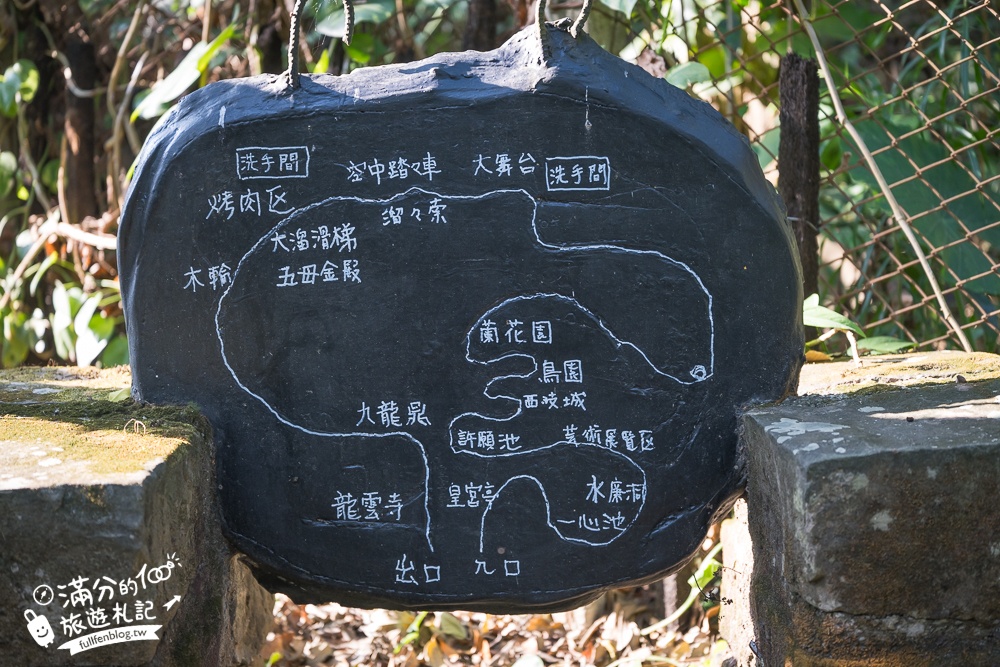 洗手間
空中踏々車
大舞台
洗手間
烤肉区
溜々索
大溜滑梯
木輪
五毋金殿
蘭花園
鳥園
西遊城
九龍鼎
許願池
芸術展覧区
龍雲寺
皇宮亭
水廉洞
一心池
出口
入口
滿分的
旅遊札記
fullfenblog.tw